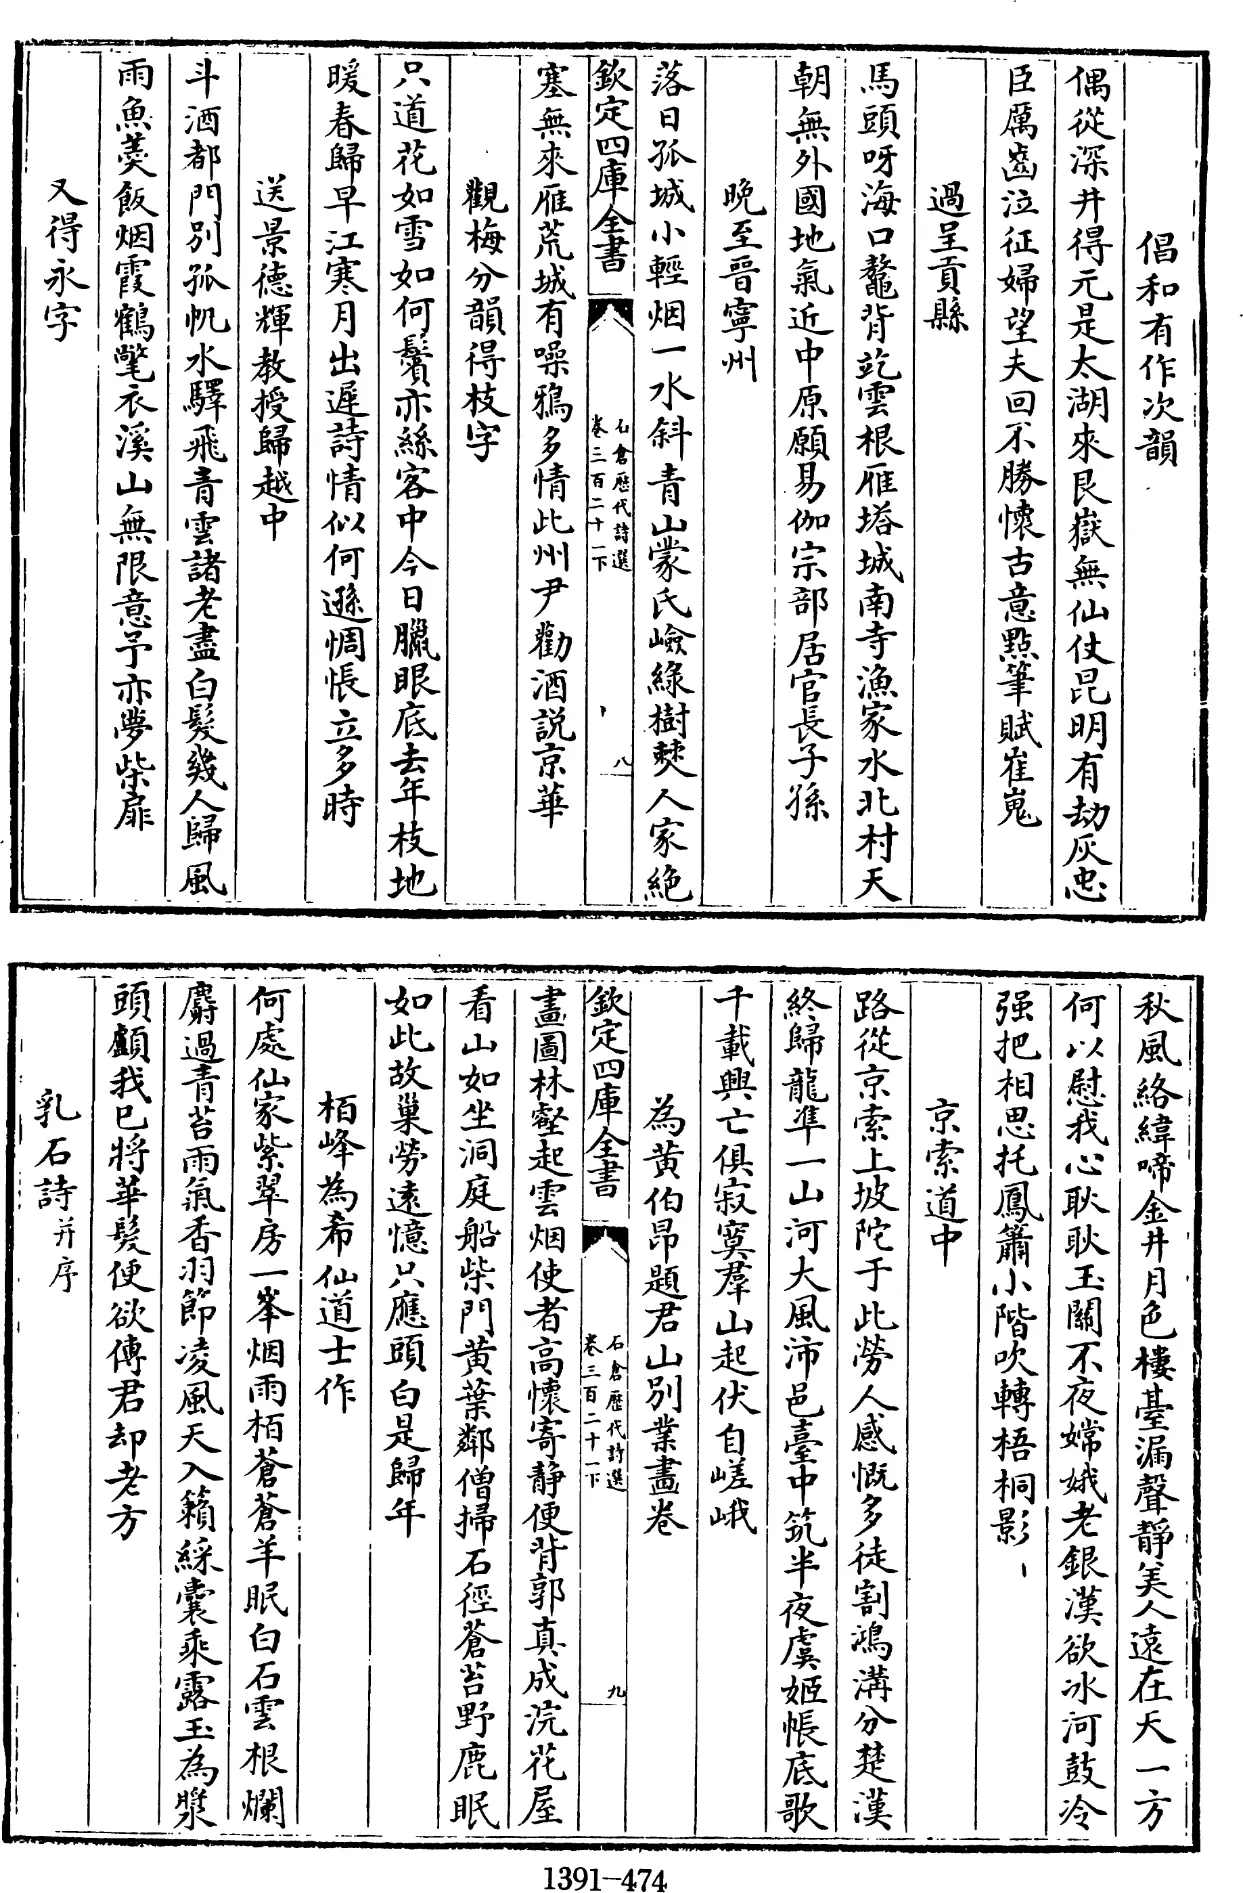 倡和有作次韻
偶從深井得元是太湖來艮嶽無仙仗昆明有劫灰忠
臣厲齒泣征婦望夫回不勝懷古意點筆賦崔嵬
過呈貢縣
馬頭呀海口鼇背矻雲根雁塔城南寺漁家水北村天
朝無外國地氣近中原願易伽宗部居官長子孫
晩至晉寧州
落日孤城小輕烟一水斜青山蒙氏嶮綠樹僰人家絶
欽定四庫全書
石倉歴代詩選
卷三百二十一下
八
塞無來雁荒城有噪鴉多情此州尹勸酒説京華
觀梅分韻得枝字
只道花如雪如何鬢亦絲客中今日臘眼底去年枝地
暖春歸早江寒月出遲詩情似何遜惆悵立多時
送景德輝教授歸越中
斗酒都門別孤帆水驛飛青雲諸老盡白髪幾人歸風
雨魚羹飯烟霞鶴氅衣溪山無限意予亦夢柴扉
又得永字
秋風絡緯啼金井月色樓臺漏聲靜美人遠在天一方
何以慰我心耿耿玉關不夜嫦娥老銀漢欲冰河鼓冷
强把相思托鳳簫小階吹轉梧桐影
京索道中
路從京索上坡陀于此勞人感慨多徒割鴻溝分楚漢
終歸龍準一山河大風沛邑臺中筑半夜虞姬帳底歌
千載興亡俱寂寞羣山起伏自嵯峨
為黄伯昂題君山別業畫卷
欽定四庫全書
石倉歴代詩選
卷三百二十一下
九
畫圖林壑起雲烟使者高懷寄靜便背郭真成浣花屋
看山如坐洞庭船柴門黄葉鄰僧掃石徑蒼苔野鹿眠
如此故巢勞遠憶只應頭白是歸年
栢峰為希仙道士作
何處仙家紫翠房一峯烟雨栢蒼蒼羊眠白石雲根爛
麝過青苔雨氣香羽節凌風天入籟綵囊乘露玉為漿
頭顱我已將華髪便欲傳君却老方
乳石詩并序
1391-474